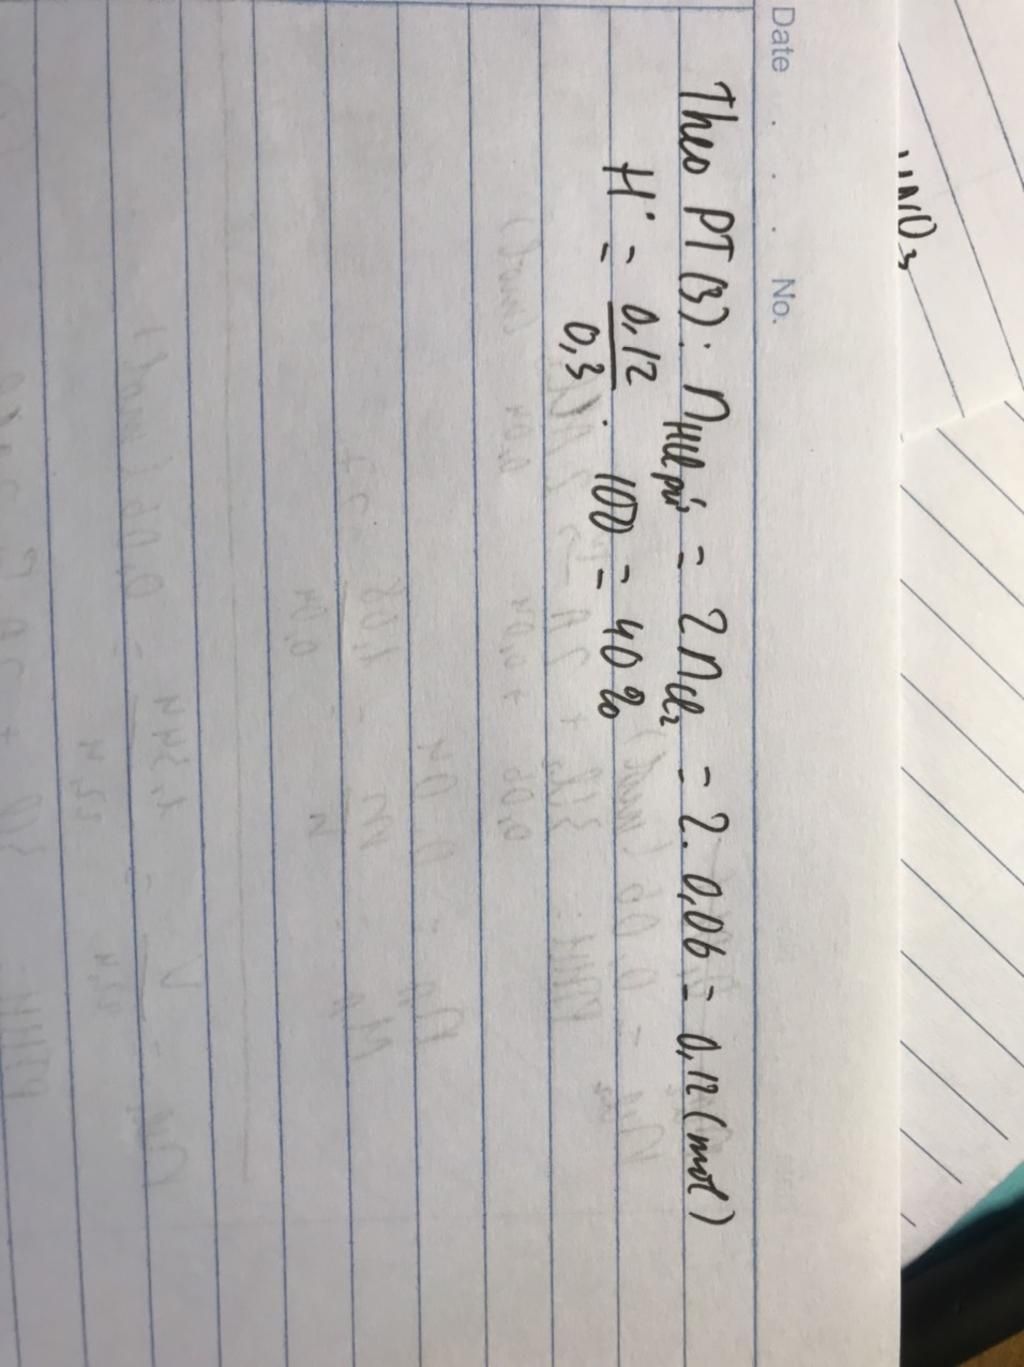 Date . . . . No.
Theo PT(3): nHCl pứ = 2nCl2 = 2.0,06 = 0,12 (mol)
H = 0,12/0,3 . 100 = 40%